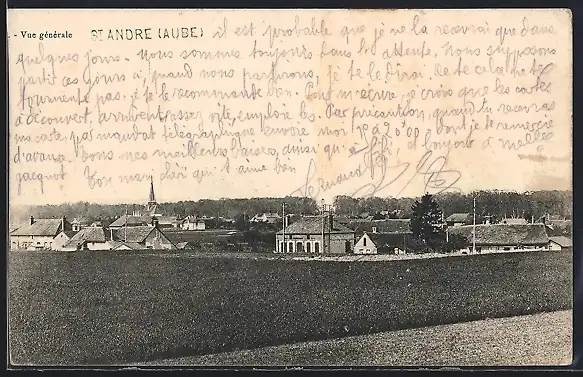 - Vue générale ST ANDRE (AUBE) il est probable que je ne la recevrai que dans
quelques jours. Nous sommes toujours dans l'attente. Nous supposons
partir ces jours ci, quand nous partirons, je te le dirai. Que cela ne te
tourmente pas, je te le recommande bien. Pour m'écrire, je crois que les cartes
à découvert arrivent assez vite, emploie les. Par précaution, quand tu recevras
ma carte, par mandat télégraphique envoie moi dont je te remercie
d'avance. Bons mes meilleurs baisers, ainsi qu'à et toujours à Melle
jacquot Ton mari chéri qui t'aime bien
Fernand